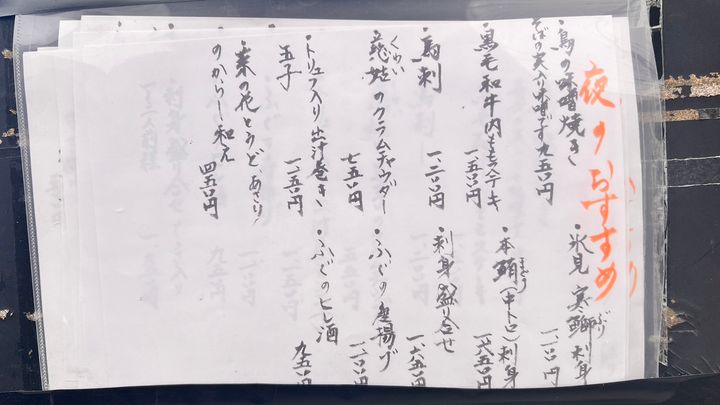 夜のおすすめ
・鳥の味噌焼き
そばの実入り味噌です九五〇円
・黒毛和牛内ももステーキ
一、一五〇円
・馬刺
一、二〇〇円
くわい
・慈姑のクラムチャウダー
七五〇円
・トリュフ入り出汁巻き
玉子
一、一五〇円
・菜の花とうど、あさり
のからし和え
四五〇円
・氷見 寒鰤刺身
ぶり
一、一〇〇円
まぐろ
・本鮪(中トロ)刺身
一、六五〇円
・刺身盛り合せ
一、六五〇円
・ふぐの唐揚げ
一、一〇〇円
・ふぐのヒレ酒
九五〇円